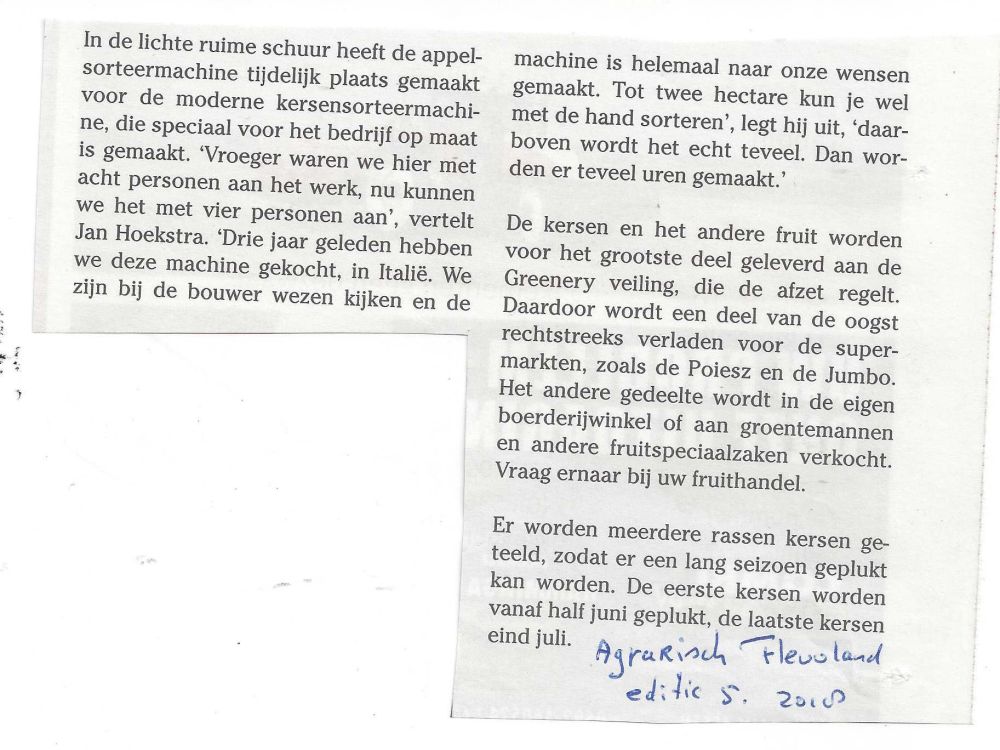 In de lichte ruime schuur heeft de appel-
sorteermachine tijdelijk plaats gemaakt
voor de moderne kersensorteermachi-
ne, die speciaal voor het bedrijf op maat
is gemaakt. ‘Vroeger waren we hier met
acht personen aan het werk, nu kunnen
we het met vier personen aan’, vertelt
Jan Hoekstra. ‘Drie jaar geleden hebben
we deze machine gekocht, in Italië. We
zijn bij de bouwer wezen kijken en de
machine is helemaal naar onze wensen
gemaakt. Tot twee hectare kun je wel
met de hand sorteren’, legt hij uit, ‘daar-
boven wordt het echt teveel. Dan wor-
den er teveel uren gemaakt.’
De kersen en het andere fruit worden
voor het grootste deel geleverd aan de
Greenery veiling, die de afzet regelt.
Daardoor wordt een deel van de oogst
rechtstreeks verladen voor de super-
markten, zoals de Poiesz en de Jumbo.
Het andere gedeelte wordt in de eigen
boerderijwinkel of aan groentemannen
en andere fruitspeciaalzaken verkocht.
Vraag ernaar bij uw fruithandel.
Er worden meerdere rassen kersen ge-
teeld, zodat er een lang seizoen geplukt
kan worden. De eerste kersen worden
vanaf half juni geplukt, de laatste kersen
eind juli.
Agrarisch Flevoland
editie 5. 2018